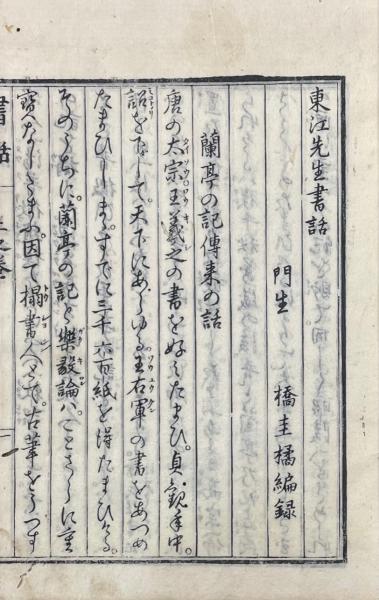 東江先生書話
門生 橋圭橘編録
蘭亭の記傳来の話
唐の太宗王羲之の書を好みたまひ。貞観年中。
詔を下して。天下にあらゆる王右軍の書をあつめ
たまひしまゝ。すでに三千六百紙を得たまひける。
そのうちに。蘭亭の記と樂毅論ハ。ことさらに重
寳なしたまふ。因て搨書人をして。古筆をうつす
書話